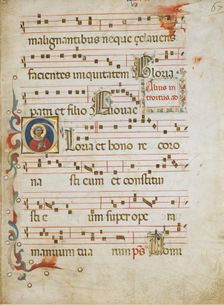 malignantibus neque zelaveris
facientes iniquitatem Gloria
patri et filio Euouae
Alius in
troitus. ad
Gloria et hono re coro
na sti eum et constitui
sti e um super ope ra
manuum tua rum ps Domi